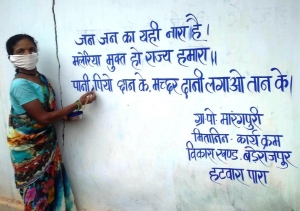 जन जन का यही नारा है।
मलेरिया मुक्त हो राज्य हमारा॥
पानी पियो छान के, मच्छर दानी लगाओ तान के।
ग्रा.पो. मारंगपुरी
मितानिन - कार्य क्रम
विकास खण्ड. बडेराजपुर
हटवारा पारा